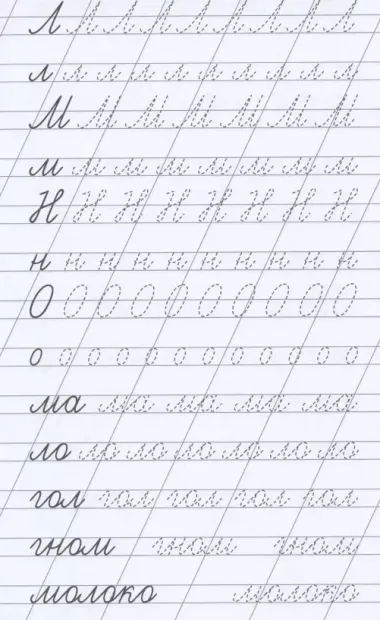 Л Л Л Л Л Л Л Л Л
л л л л л л л л л л
М М М М М М М М
м м м м м м м м
Н Н Н Н Н Н Н Н
н н н н н н н н н н
О О О О О О О О О О
о о о о о о о о о о о
ма ма ма ма ма
ло ло ло ло ло ло ло
гол гол гол гол гол
гном гном гном
молоко молоко